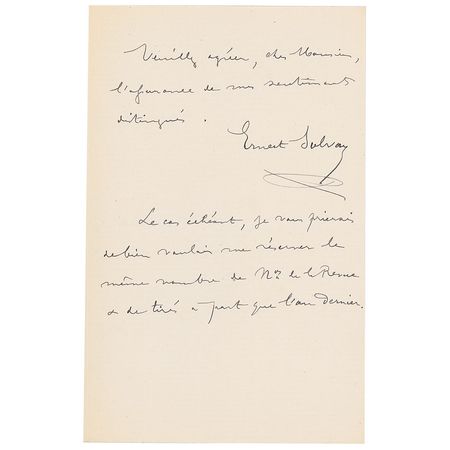 Veuillez agréer, cher Monsieur,
l'assurance de mes sentiments
distingués.
Ernest Solvay
Le cas échéant, je vous prierais
de bien vouloir me réserver le
même nombre de Nos de la Revue
& de tirés à part que l'an dernier.